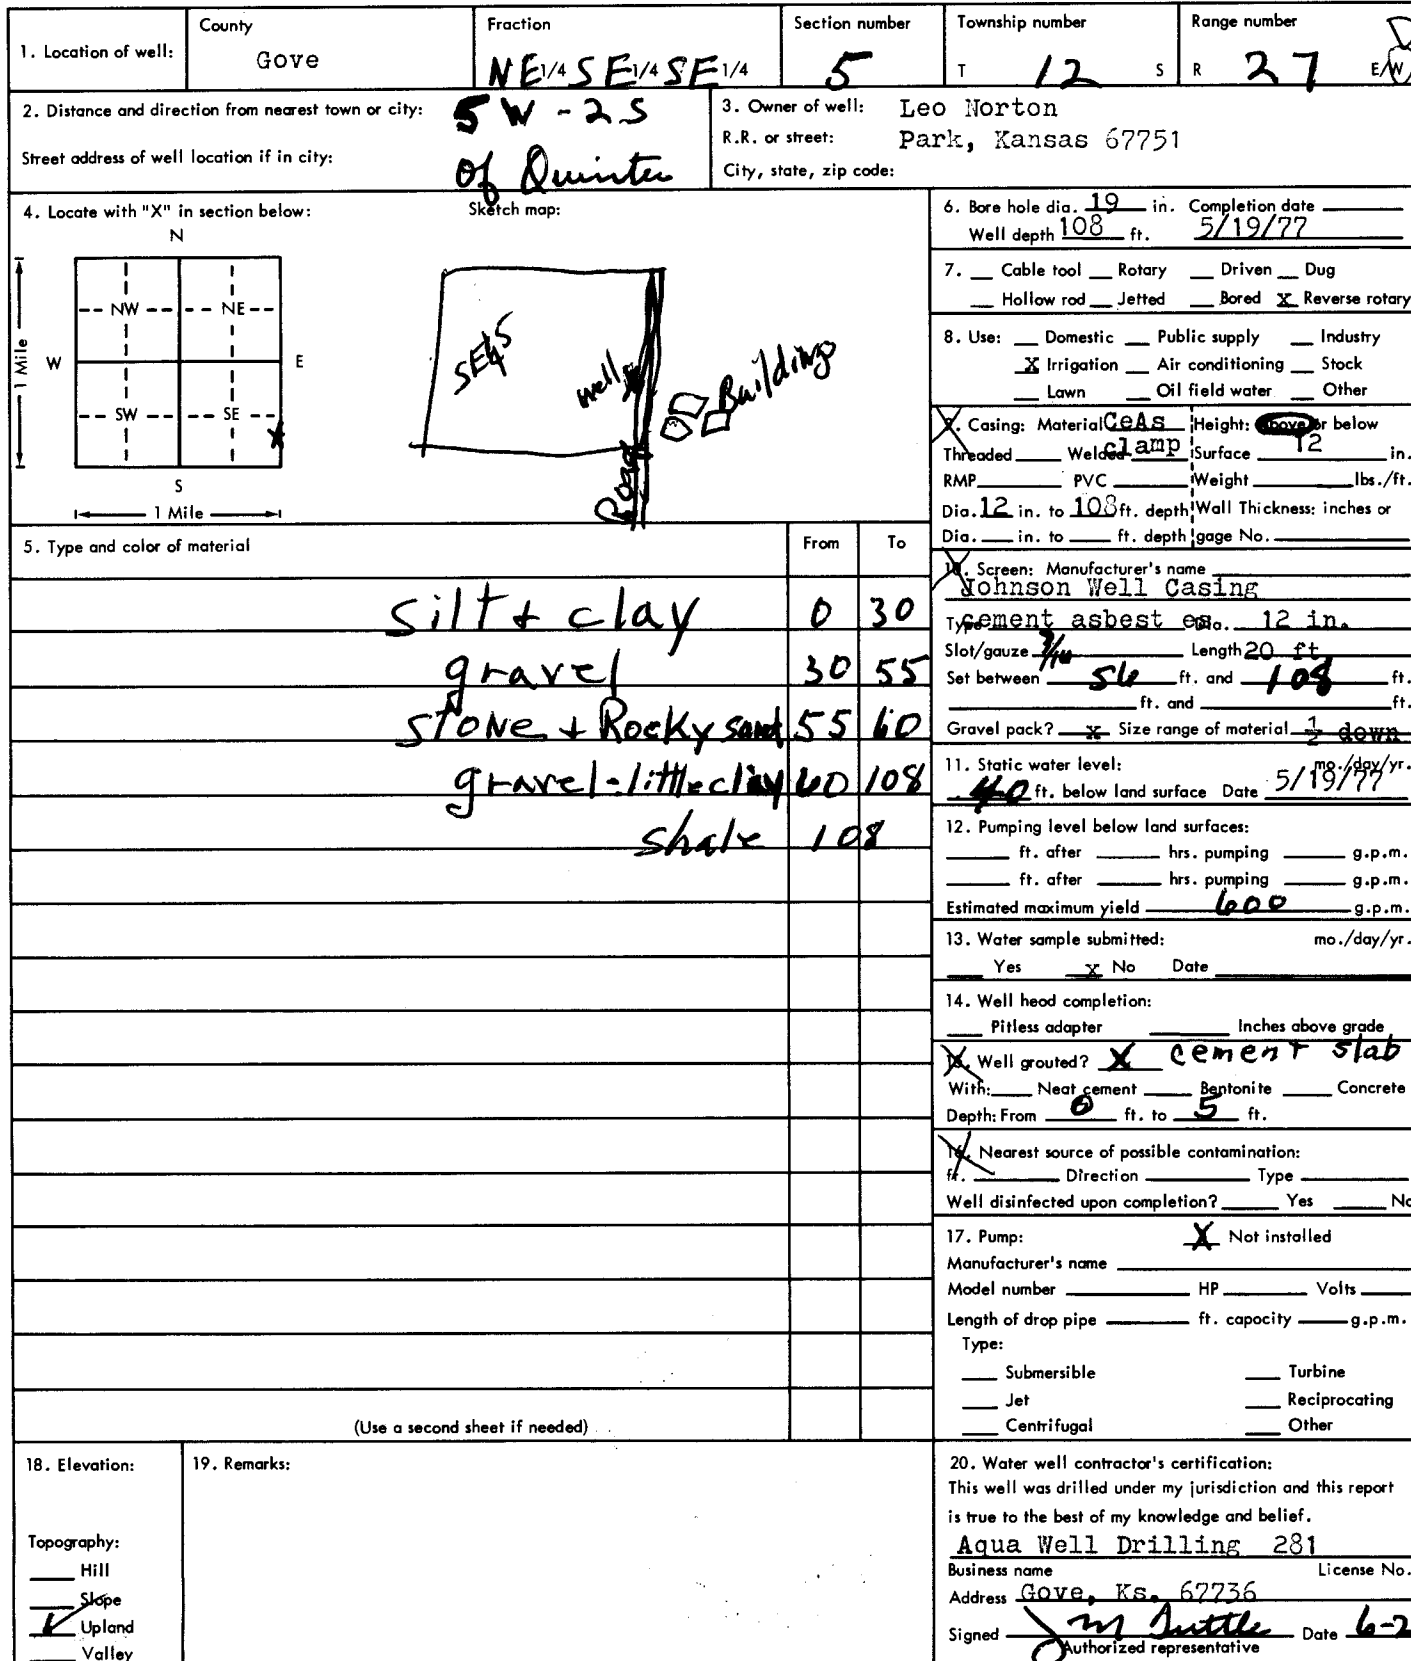 1. Location of well: County Gove Fraction NE 1/4 SE 1/4 SE 1/4 Section number 5 Township number T 12 S Range number R 27 E/W
2. Distance and direction from nearest town or city: 5 W - 2 S
Street address of well location if in city: of Quinter
3. Owner of well: Leo Norton
R.R. or street: Park, Kansas 67751
City, state, zip code:
4. Locate with "X" in section below: Sketch map:
N
NW NE
W E
1 Mile
SW SE
X
S
1 Mile
SE4 5
well
Buildings
Road
5. Type and color of material From To
silt + clay 0 30
gravel 30 55
stone + Rocky sand 55 60
gravel - little clay 60 108
shale 108
(Use a second sheet if needed)
6. Bore hole dia. 19 in. Completion date
Well depth 108 ft. 5/19/77
7. Cable tool Rotary Driven Dug
Hollow rod Jetted Bored X Reverse rotary
8. Use: Domestic Public supply Industry
X Irrigation Air conditioning Stock
Lawn Oil field water Other
9. Casing: Material CeAs Height: Above or below
Threaded Welded clamp Surface 12 in.
RMP PVC Weight lbs./ft.
Dia. 12 in. to 108 ft. depth Wall Thickness: inches or
Dia. in. to ft. depth gage No.
10. Screen: Manufacturer's name
Johnson Well Casing
Type cement asbest es Dia. 12 in.
Slot/gauze 3/16 Length 20 ft
Set between 56 ft. and 108 ft.
ft. and ft.
Gravel pack? x Size range of material 1/2 down
11. Static water level: mo./day/yr.
40 ft. below land surface Date 5/19/77
12. Pumping level below land surfaces:
ft. after hrs. pumping g.p.m.
ft. after hrs. pumping g.p.m.
Estimated maximum yield 600 g.p.m.
13. Water sample submitted: mo./day/yr.
Yes x No Date
14. Well head completion:
Pitless adapter Inches above grade
15. Well grouted? X cement slab
With: Neat cement Bentonite Concrete
Depth: From 0 ft. to 5 ft.
16. Nearest source of possible contamination:
ft. Direction Type
Well disinfected upon completion? Yes No
17. Pump: X Not installed
Manufacturer's name
Model number HP Volts
Length of drop pipe ft. capacity g.p.m.
Type:
Submersible Turbine
Jet Reciprocating
Centrifugal Other
18. Elevation:
Topography:
Hill
Slope
Upland
Valley
19. Remarks:
20. Water well contractor's certification:
This well was drilled under my jurisdiction and this report
is true to the best of my knowledge and belief.
Aqua Well Drilling 281
Business name License No.
Address Gove, Ks. 67736
Signed M Tuttle Date 6-2
Authorized representative